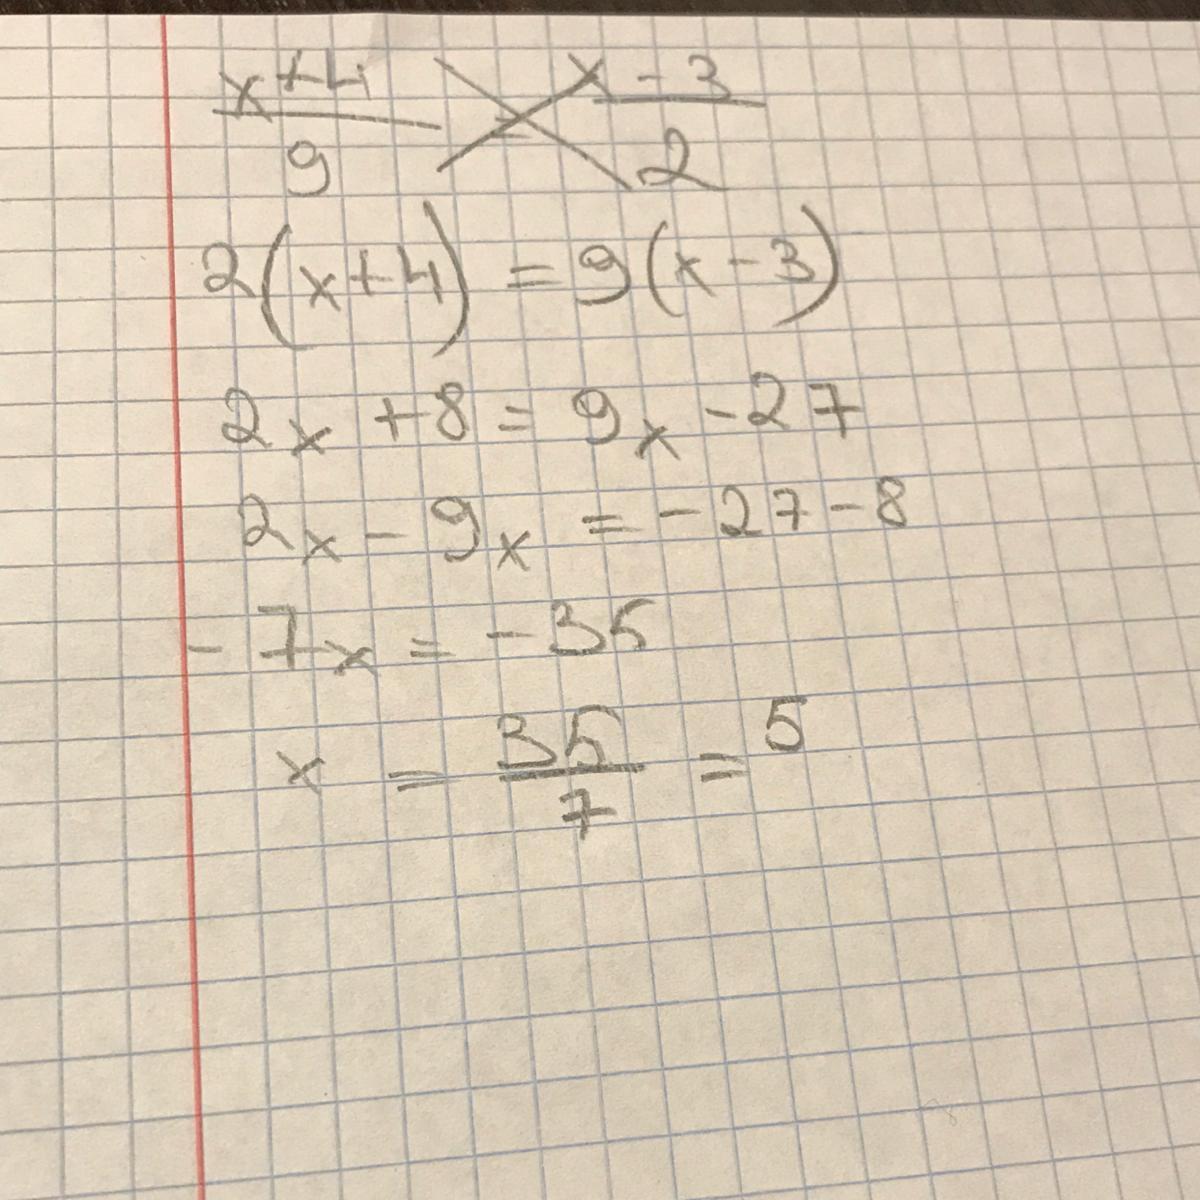 x+4/9 = x-3/2
2(x+4) = 9(x-3)
2x +8 = 9x -27
2x - 9x = -27-8
-7x = -35
x = 35/7 = 5